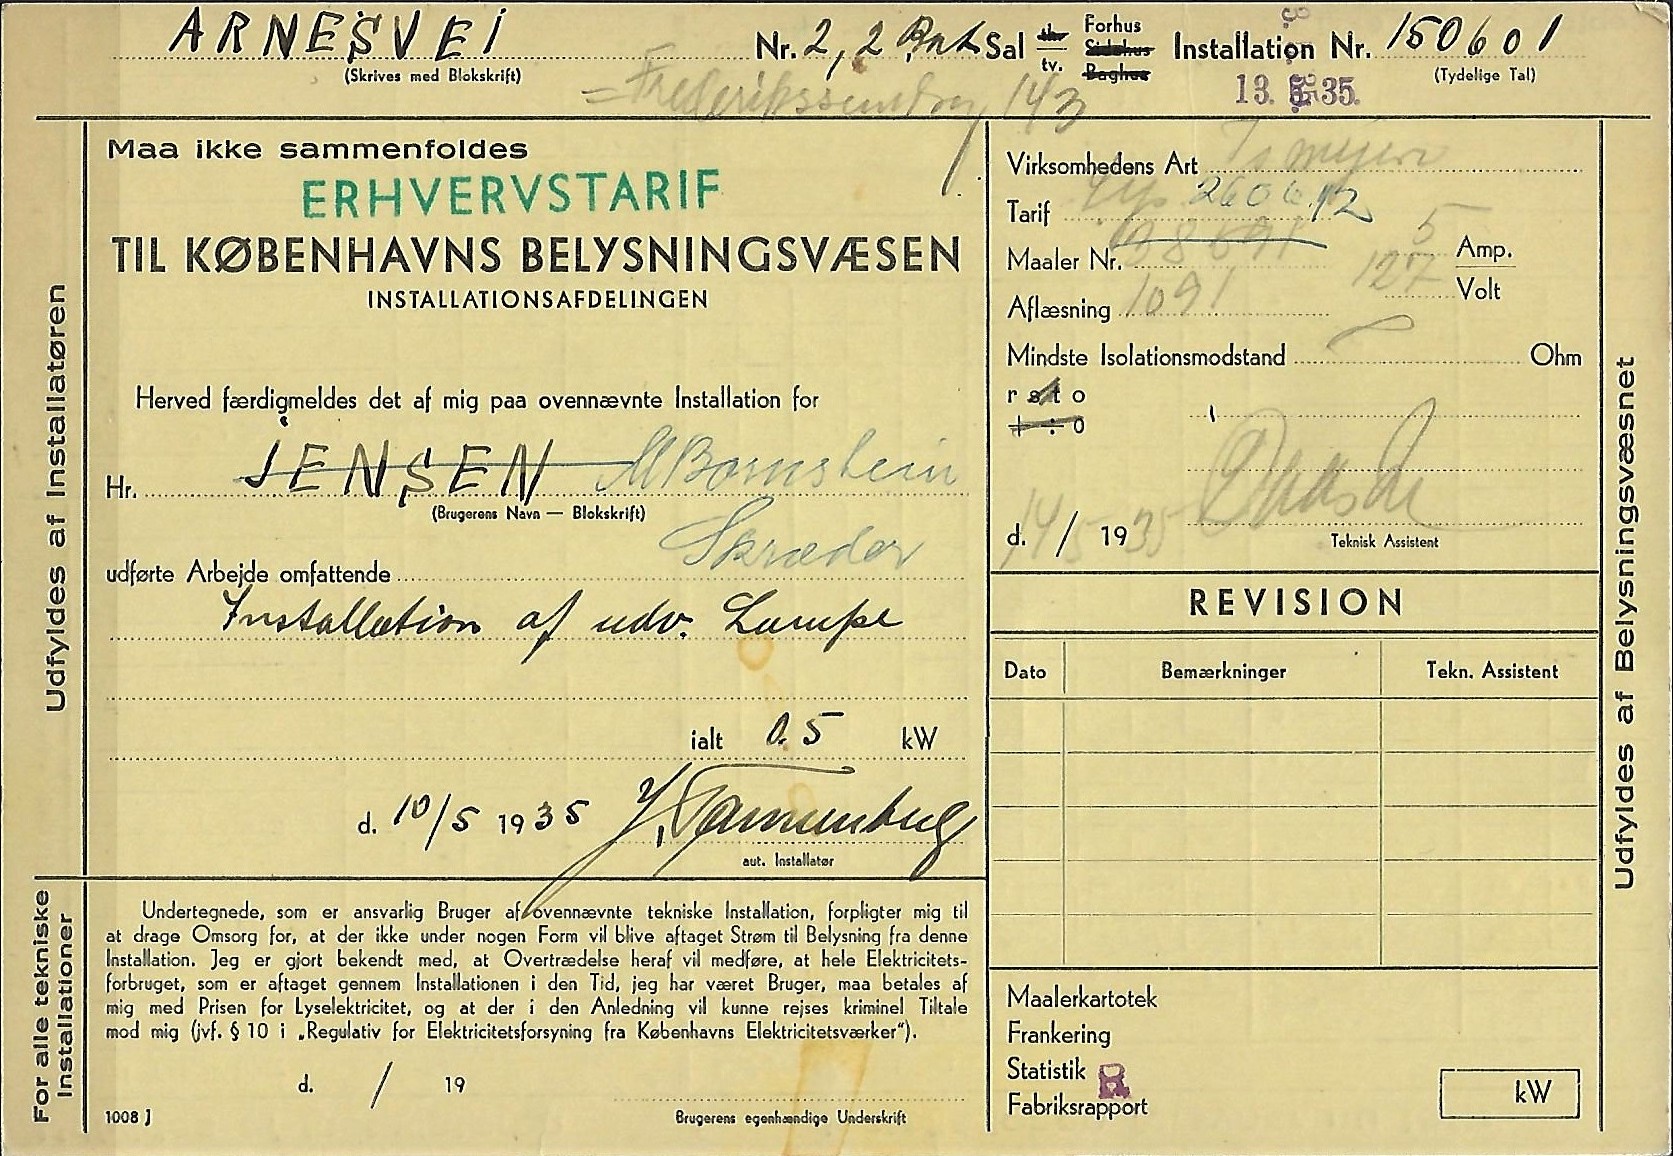 ARNESVEJ Nr. 2, 2 Sal th. Forhus Installation Nr. 150601
(Skrives med Blokskrift) tv. Sidehus (Tydelige Tal)
Baghus
= Frederikssundsvej 143 13. 5. 35.
Maa ikke sammenfoldes
ERHVERVSTARIF
TIL KØBENHAVNS BELYSNINGSVÆSEN
INSTALLATIONSAFDELINGEN
Herved færdigmeldes det af mig paa ovennævnte Installation for
Hr. JENSEN M Bornstein
(Brugerens Navn — Blokskrift)
Skræder
udførte Arbejde omfattende
Installation af udv. Lampe
ialt 0.5 kW
d. 10/5 1935 Tannenberg
aut. Installatør
Udfyldes af Installatøren
Virksomhedens Art
Tarif
Maaler Nr. 5 Amp.
127 Volt
Aflæsning 1091
Mindste Isolationsmodstand Ohm
r s t o
+ ÷ o
d. 14/5 1935
Teknisk Assistent
REVISION
Dato Bemærkninger Tekn. Assistent
Udfyldes af Belysningsvæsnet
For alle tekniske
Installationer
Undertegnede, som er ansvarlig Bruger af ovennævnte tekniske Installation, forpligter mig til
at drage Omsorg for, at der ikke under nogen Form vil blive aftaget Strøm til Belysning fra denne
Installation. Jeg er gjort bekendt med, at Overtrædelse heraf vil medføre, at hele Elektricitets-
forbruget, som er aftaget gennem Installationen i den Tid, jeg har været Bruger, maa betales af
mig med Prisen for Lyselektricitet, og at der i den Anledning vil kunne rejses kriminel Tiltale
mod mig (jvf. § 10 i „Regulativ for Elektricitetsforsyning fra Københavns Elektricitetsværker“).
d. / 19
1008 J Brugerens egenhændige Underskrift
Maalerkartotek
Frankering
Statistik
Fabriksrapport
kW